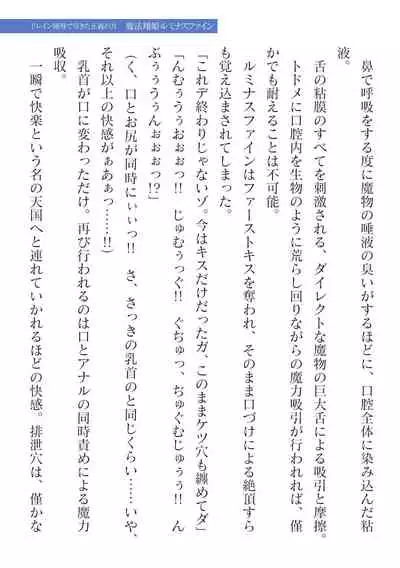 ドレイン凌辱で 正義の力 魔法翔姫ルミナスファイン
鼻で呼吸をする度に魔物の唾液の臭いがするほどに、口腔全体に染み込んだ粘
液。
舌の粘膜のすべてを刺激される、ダイレクトな魔物の巨大舌による吸引と摩擦。
トドメに口腔内を生物のように荒らし回りながらの魔力吸引が行われれば、僅
かでも耐えることは不可能。
ルミナスファインはファーストキスを奪われ、そのまま口づけによる絶頂すら
も覚え込まされてしまった。
「これデ終わりじゃないゾ。今はキスだけだったガ、このままケツ穴も纏めてダ」
「んむぅうぅおぉぉっ!! じゅむぅっぐ!! ぐちゅっ、ちゅぐむじゅぅぅ!! ん
ぶぅぅうぅんぉぉぉっ!?」
（く、口とお尻が同時にぃぃっ!! さ、さっきの乳首のと同じくらい……いや、
それ以上の快感がぁあぁっ……!!）
乳首が口に変わっただけ。再び行われるのは口とアナルの同時責めによる魔力
吸収。
一瞬で快楽という名の天国へと連れていかれるほどの快感。排泄穴は、僅かな